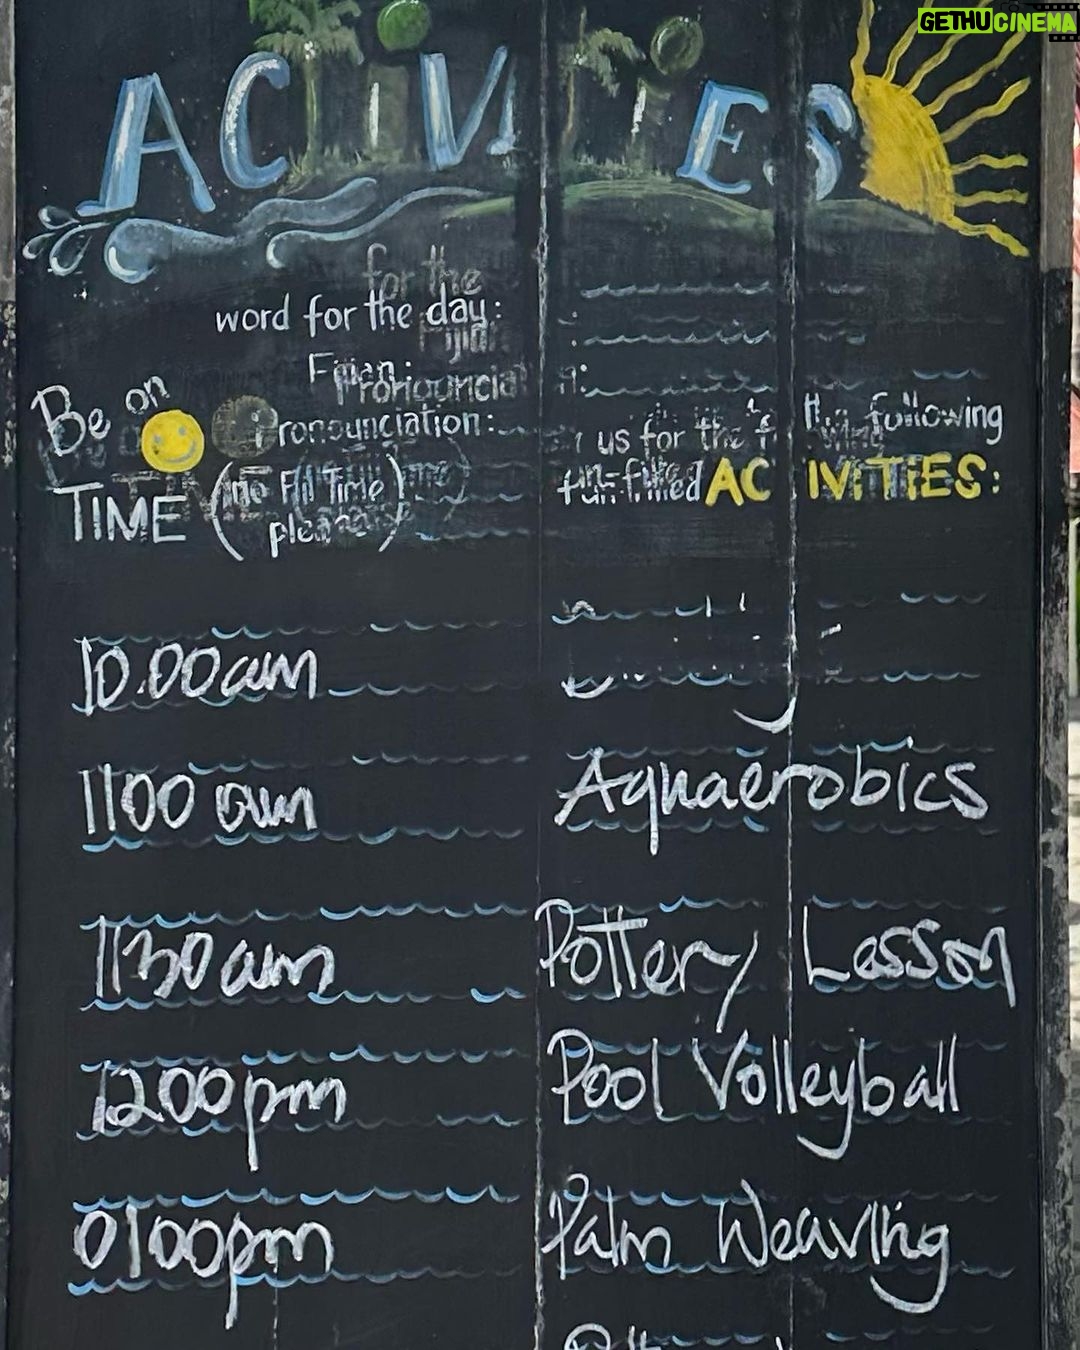 GETHUCINEMA
ACTIVITIES
for the
word for the day:
Fijian
Fijian:
Pronunciation:
Pronunciation:
Be on
TIME (no Fiji Time
please)
us for the following
fun-filled ACTIVITIES:
10.00am
1100am Aquaerobics
1130am Pottery Lesson
1200pm Pool Volleyball
0100pm Palm Weaving